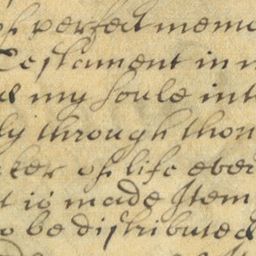 of perfect memo
Testament in m
d my soule int
ly through thon
ter of life ever
t is made Item
o be distributed